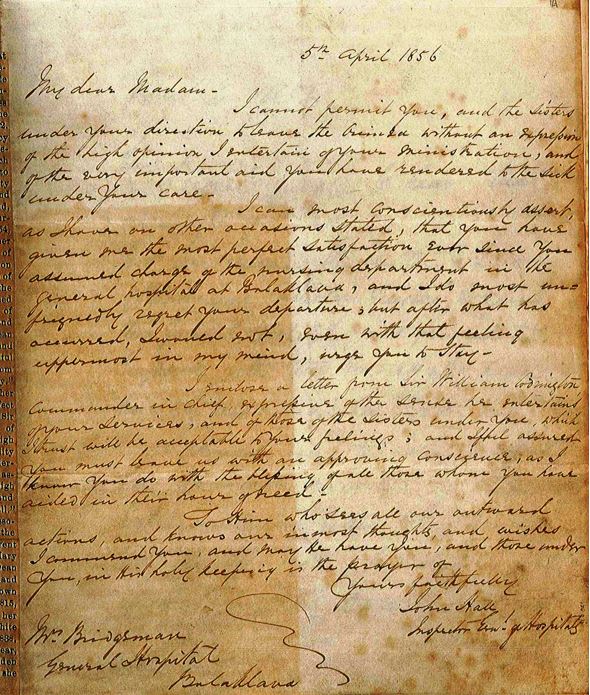 5th April 1856
My dear Madam -
I cannot permit you, and the Sisters
under your direction to leave the Crimea without an expression
of the high opinion I entertain of your ministration, and
of the very important aid you have rendered to the sick
under your care -
I can most conscientiously assert,
as I have on other occasions stated, that you have
given me the most perfect satisfaction ever since you
assumed charge of the nursing department in the
general hospital at Balaklava, and I do most un=
feignedly regret your departure; but after what has
occurred, I would not, even with that feeling
uppermost in my mind, urge you to stay -
I enclose a letter from Sir William Codrington
Commander in chief, expressive of the sense he entertains
of your services, and of those of the Sisters under you, which
I trust will be acceptable to your feelings; and I feel assured
you must leave us with an approving conscience, as I
know you do with the blessing of all those whom you have
aided in their hour of need -
To Him who sees all our outward
actions, and knows our inmost thoughts, and wishes
I commend you, and may He have you, and those under
you, in His holy keeping is the prayer of
Yours faithfully
John Hall
Inspector Genl. of Hospitals
Mrs Bridgeman
General Hospital
Balaklava